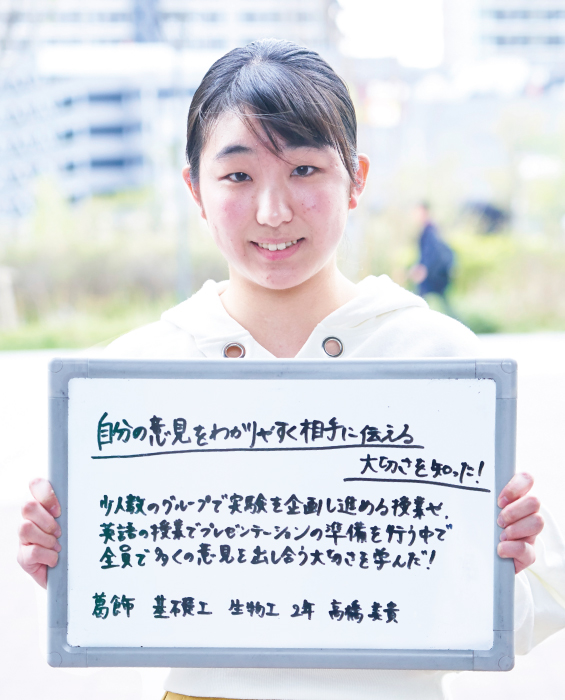 自分の意見をわかりやすく相手に伝える
大切さを知った!
少人数のグループで実験を企画し進める授業や、
英語の授業でプレゼンテーションの準備を行う中で
全員で多くの意見を出し合う大切さを学んだ!
葛飾 基礎工 生物工 2年 高橋